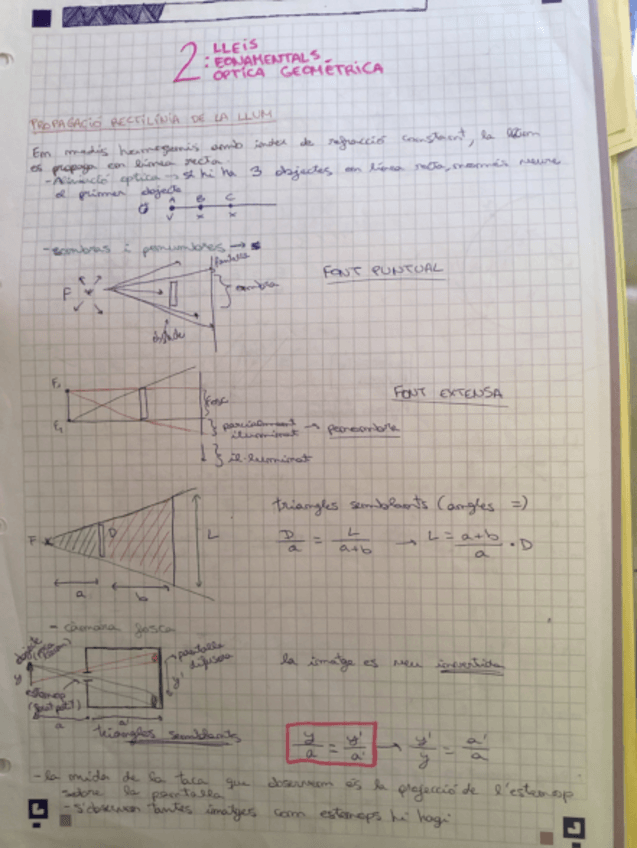 2 LLEIS
: FONAMENTALS
ÒPTICA GEOMÈTRICA
PROPAGACIÓ RECTILÍNIA DE LA LLUM
Em medis homogenis amb índex de refracció constant, la llum
es propaga en línea recta.
- Alineació optica → si hi ha 3 objectes en línea recta, només veure
el primer objecte
A B C
V x x
- sombras i penumbres →
pantalla
F
ombra
FONT PUNTUAL
F1
fosc
FONT EXTENSA
F2
parcialment
il·luminat → penombra
il·luminat
triangles semblants (angles =)
F D L
D/a = L/a+b → L = a+b/a · D
a b
- càmara fosca
objecte
pantalla
difusora
y y'
la imatge es veu invertida
estenop
a a'
triangles semblants
y/a = y'/a' → y'/y = a'/a
- la mida de la taca que observem és la projecció de l'estenop
sobre la pantalla
- S'observen tantes imatges com estenops hi hagi